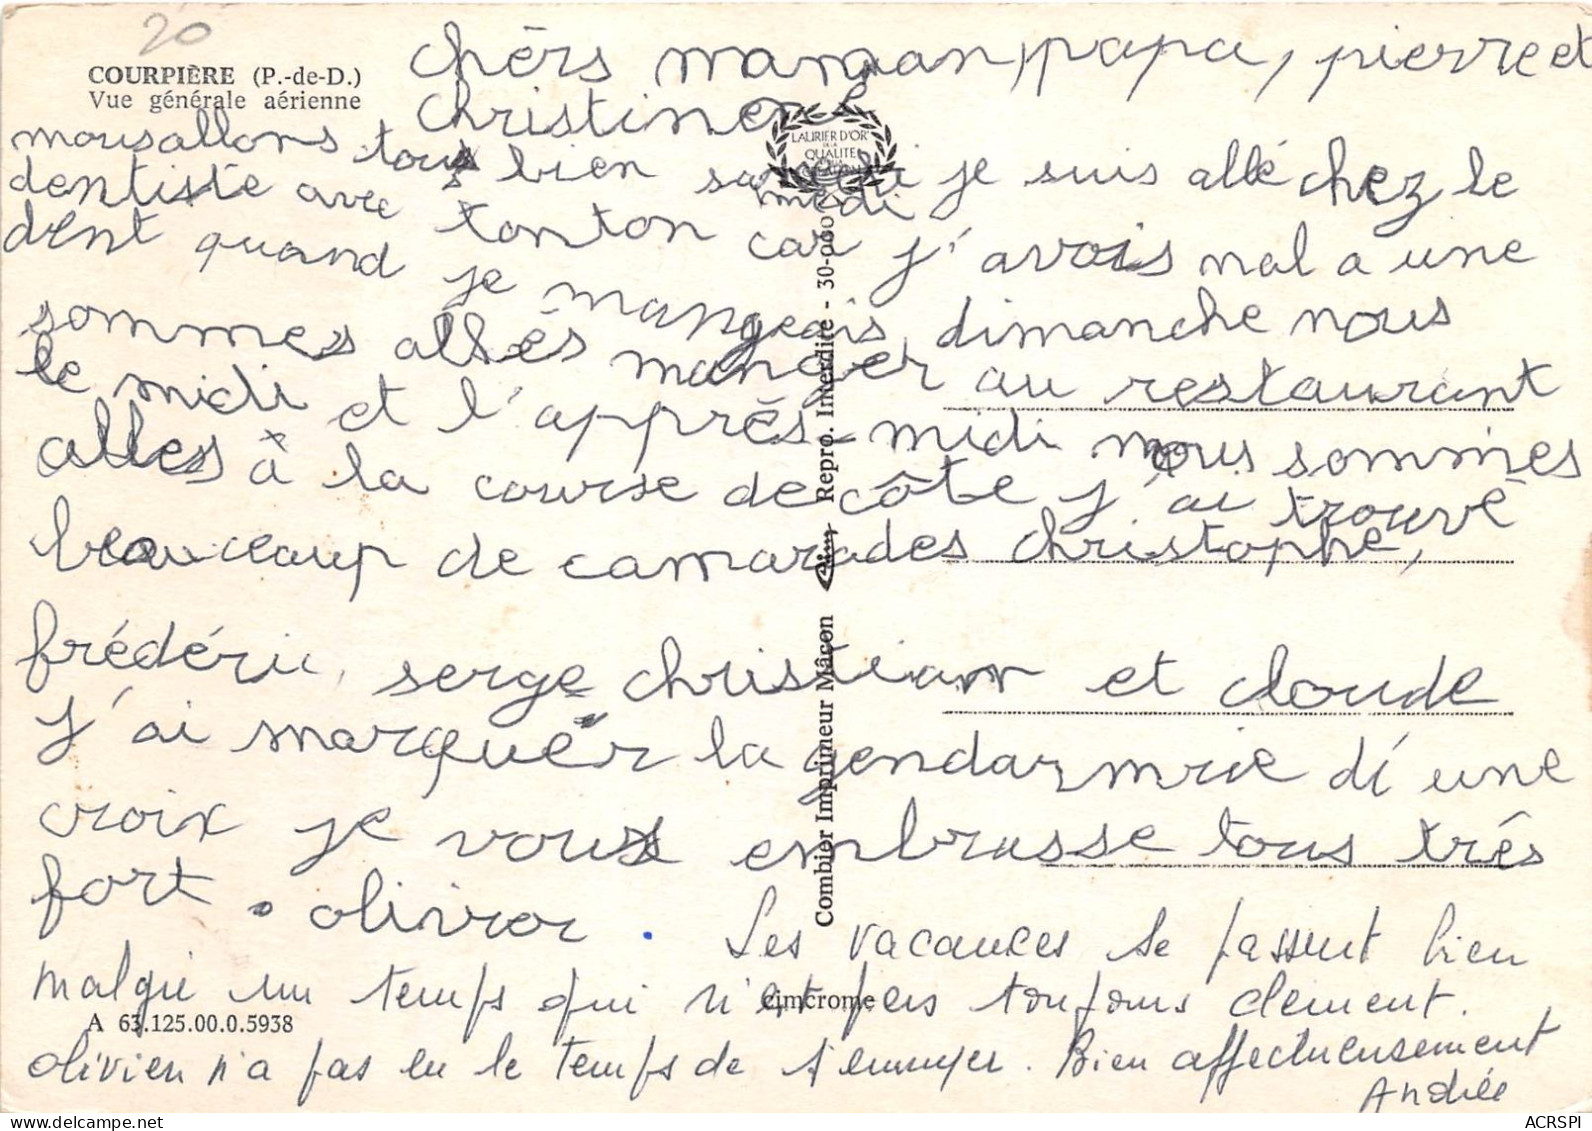 20
COURPIÈRE (P.-de-D.)
Vue générale aérienne
chèrs maman, papa, pierre et
christine
nous allons tous bien samedi je suis allé chez le
midi
dentiste avec tonton car j'avais mal a une
dent quand je mangeais, dimanche nous
sommes allés manger au restaurant
le midi et l'après-midi nous sommes
alles à la course de côte j'ai trouvé
beaucoup de camarades christophe,
frédéric, serge christian et cloude
j'ai marquér la gendarmrie d'une
croix je vous embrasse tous très
fort. olivier.
Les vacances se passent bien
malgré un temps qui n'est pas toujours clément.
Olivier n'a pas eu le temps de s'ennuyer. Bien affectueusement
Andrée
LAURIER D'OR
DE LA
QUALITE
Combier Imprimeur Mâcon Repro. Interdite - 30-000
cimcrome
A 63.125.00.0.5938
ACRSPI